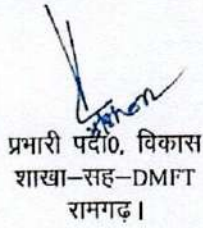 प्रभारी पदा0, विकास
शाखा–सह–DMFT
रामगढ़।